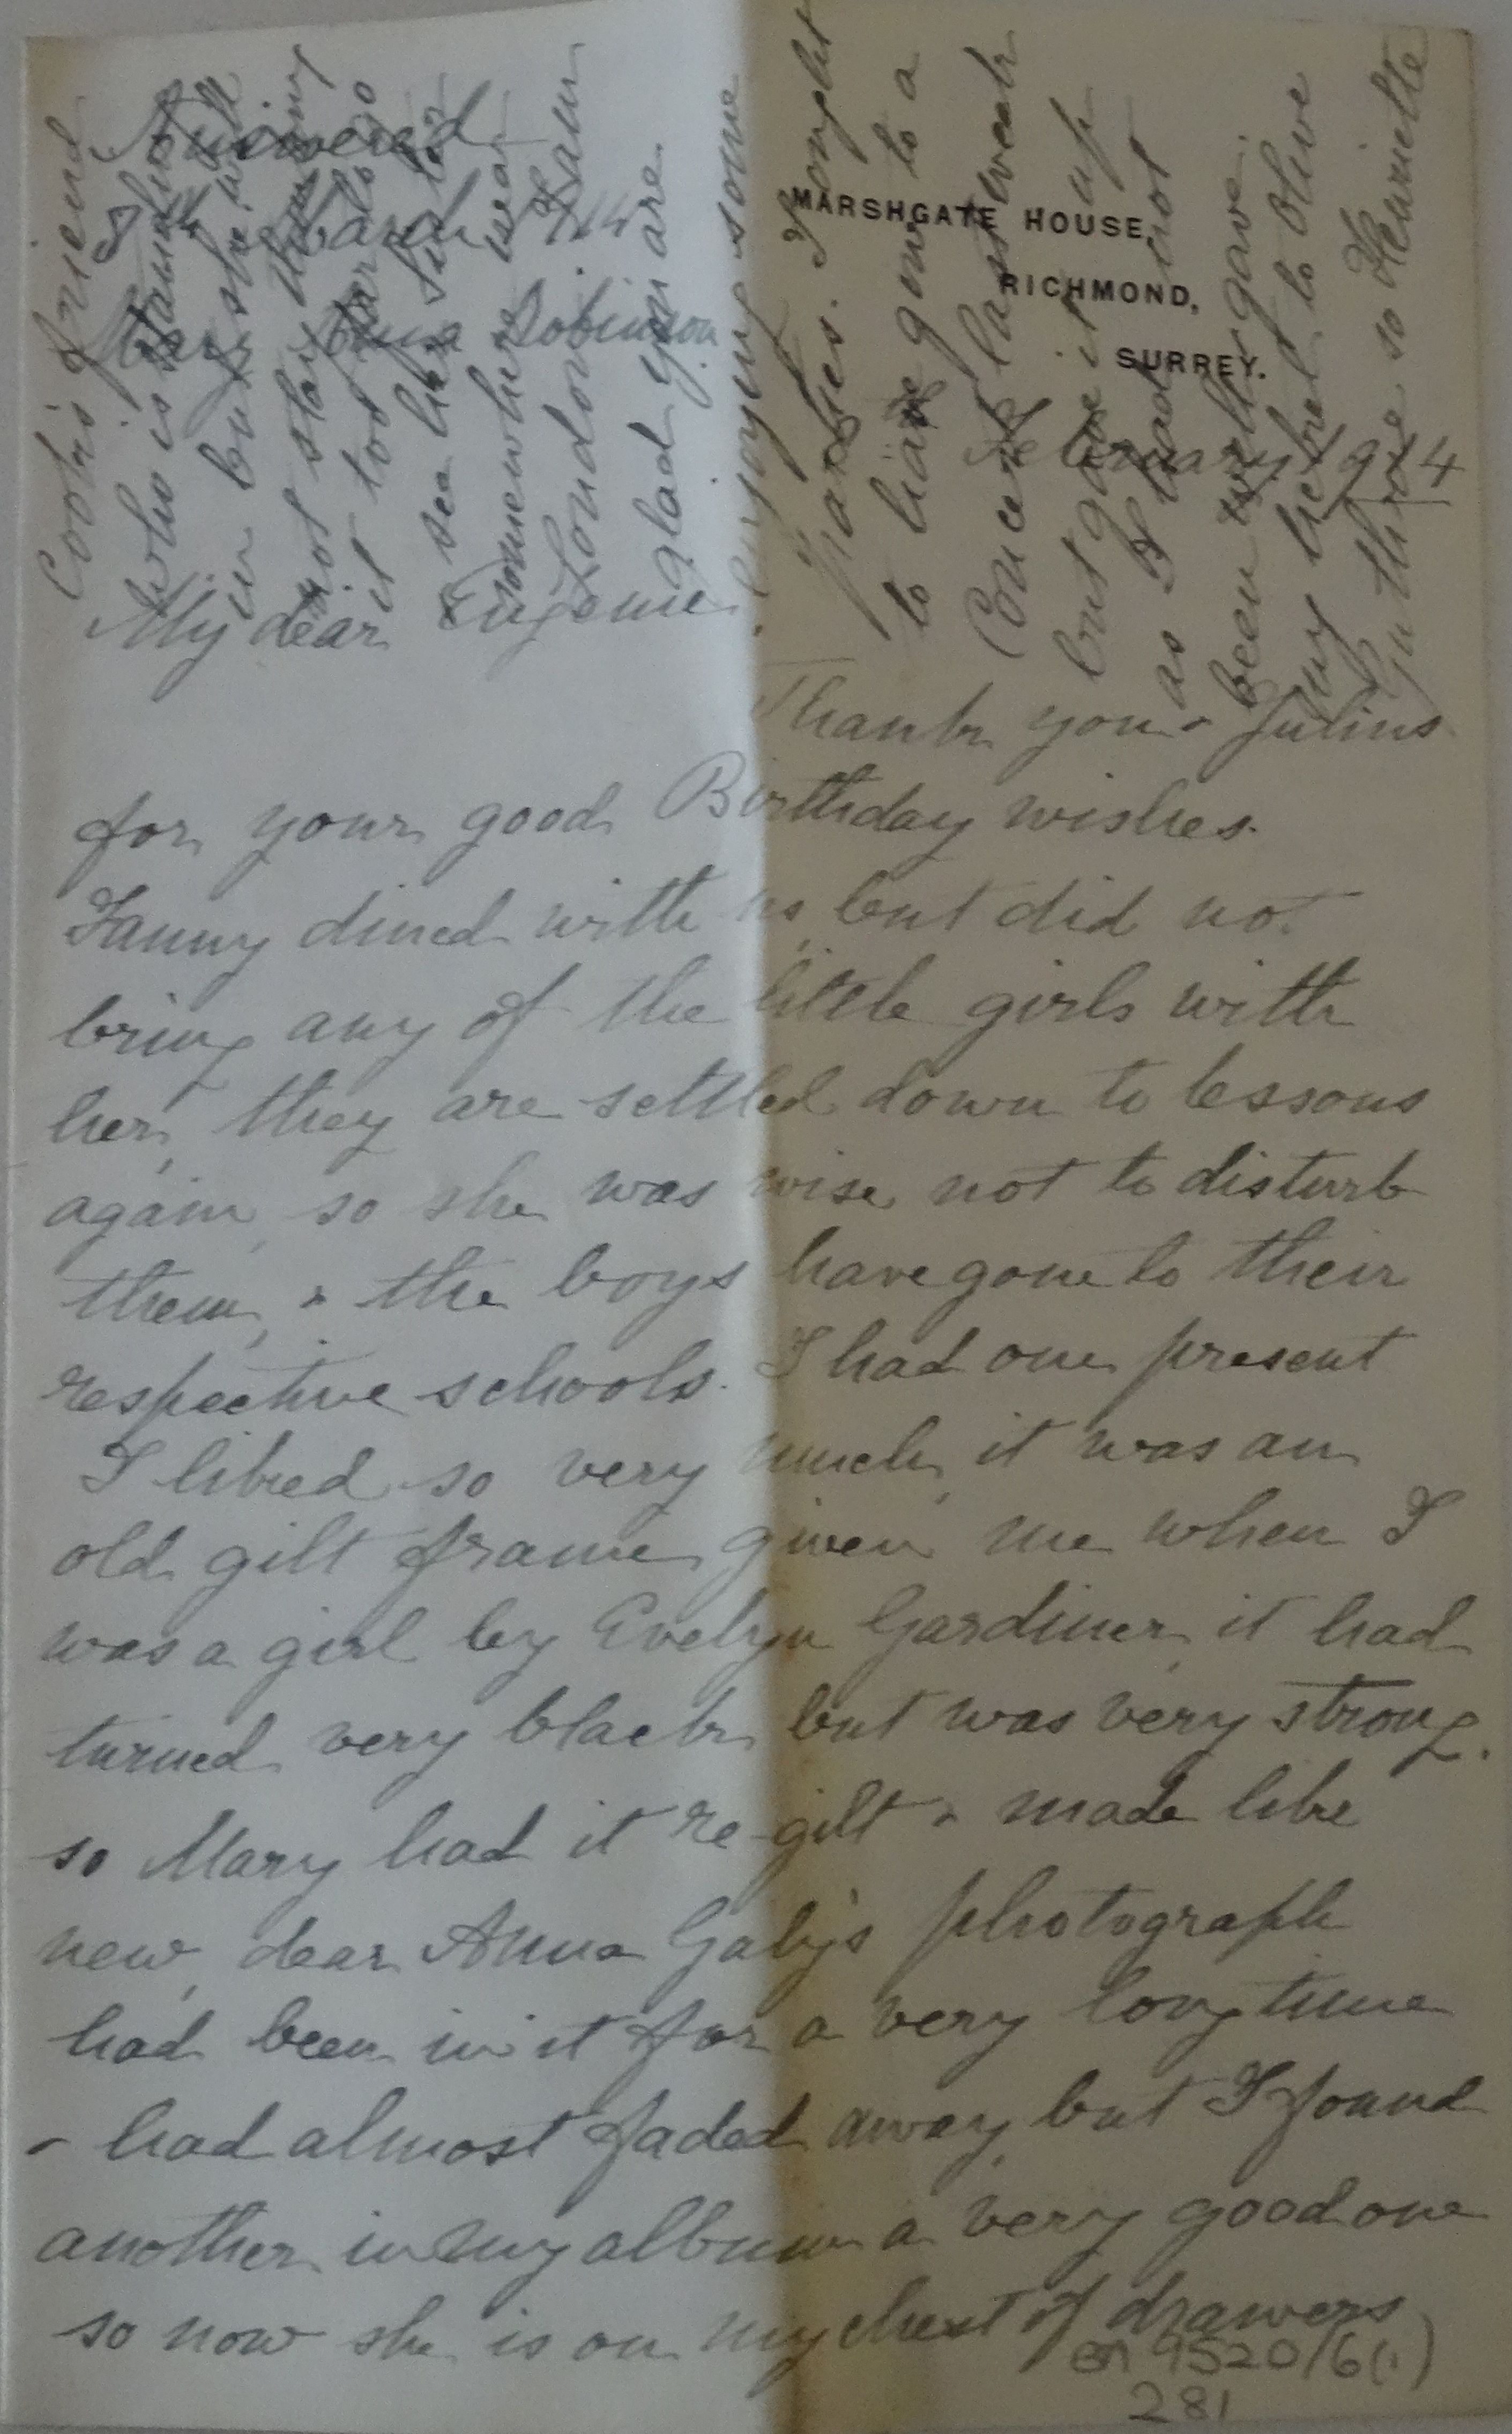 Answered
March 1914
Mary Anna Robinson
MARSHGATE HOUSE,
RICHMOND,
SURREY.
February 1914
My dear Eugenie
Thank you & Julius
for your good Birthday wishes.
Fanny dined with us, but did not
bring any of the little girls with
her, they are settled down to lessons
again, so she was wise not to disturb
them, & the boys have gone to their
respective schools. I had one present
I liked so very much, it was an
old gilt frame, given me when I
was a girl by Evelyn Gardiner, it had
turned very black, but was very strong.
so Mary had it re-gilt & made like
new, dear Anna Gaby's photograph
had been in it for a very long time
& had almost faded away, but I found
another in my album a very good one
so now she is on my chest of drawers
Cook's friend
who is standing
in but she will
not stay
it too
see her
somewhere near
London. I am
glad you are
enjoying some
parties. I ought
to have gone to a
Concert last week
but gave it up
as I had not
been well & gave
my ticket to Olive
Guthrie so Henriette
9520/6(1)
281